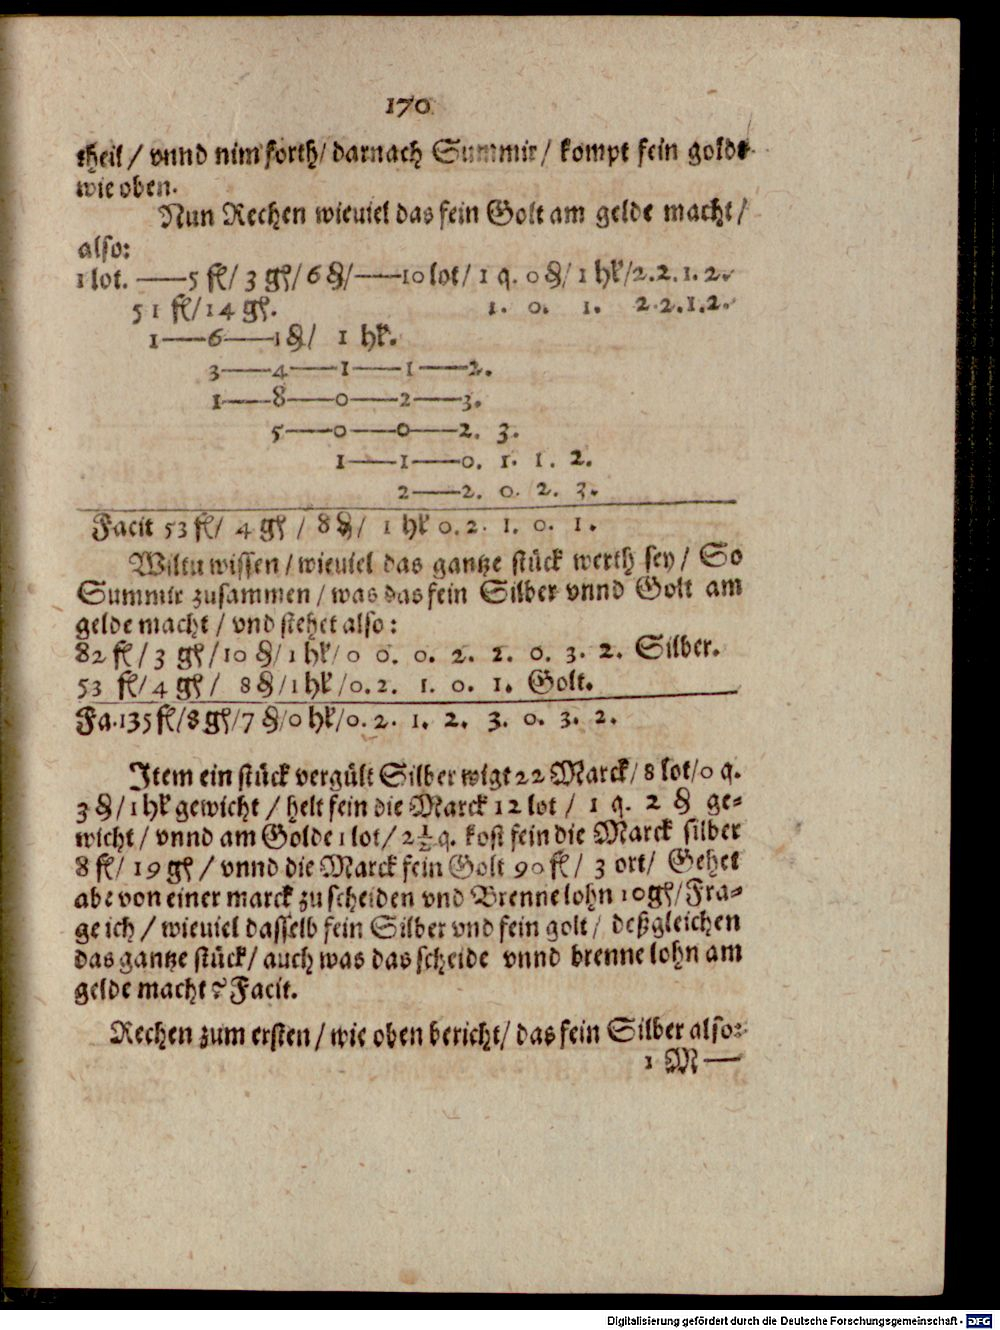 170
theil / vnnd nim forth / darnach Summir / kompt fein golde
wie oben.
Nun Rechen wieuiel das fein Golt am gelde macht /
also:
1 lot. —— 5 fl / 3 gl / 6 ₰ / —— 10 lot / 1 q. 0 ₰ / 1 hl / 2. 2. 1. 2.
51 fl / 14 gl. 1. 0. 1. 2. 2. 1. 2.
1 —— 6 —— 1 ₰ / 1 hl.
3 —— 4 —— 1 —— 1 —— 2.
1 —— 8 —— 0 —— 2 —— 3.
5 —— 0 —— 0 —— 2. 3.
1 —— 1 —— 0. 1. 1. 2.
2 —— 2. 0. 2. 3.
Facit 53 fl / 4 gl / 8 ₰ / 1 hl 0. 2. 1. 0. 1.
Wiltu wissen / wieuiel das gantze stück werth sey / So
Summir zusammen / was das fein Silber vnnd Golt am
gelde macht / vnd stehet also:
82 fl / 3 gl / 10 ₰ / 1 hl / 0 0. 0. 2. 2. 0. 3. 2. Silber.
53 fl / 4 gl / 8 ₰ / 1 hl / 0. 2. 1. 0. 1. Golt.
Fa. 135 fl / 8 gl / 7 ₰ / 0 hl / 0. 2. 1. 2. 3. 0. 3. 2.
Item ein stück vergült Silber wigt 22 Marck / 8 lot / 0 q.
3 ₰ / 1 hl gewicht / helt fein die Marck 12 lot / 1 q. 2 ₰ ge=
wicht / vnnd am Golde 1 lot / 2½ q. kost fein die Marck silber
8 fl / 19 gl / vnnd die Marck fein Golt 90 fl / 3 ort / Gehet
abe von einer marck zu scheiden vnd Brennelohn 10 gl / Fra=
ge ich / wieuiel dasselb fein Silber vnd fein golt / deßgleichen
das gantze stück / auch was das scheide vnnd brennelohn am
gelde macht? Facit.
Rechen zum ersten / wie oben bericht / das fein Silber also:
1 M ——
Digitalisierung gefördert durch die Deutsche Forschungsgemeinschaft - DFG